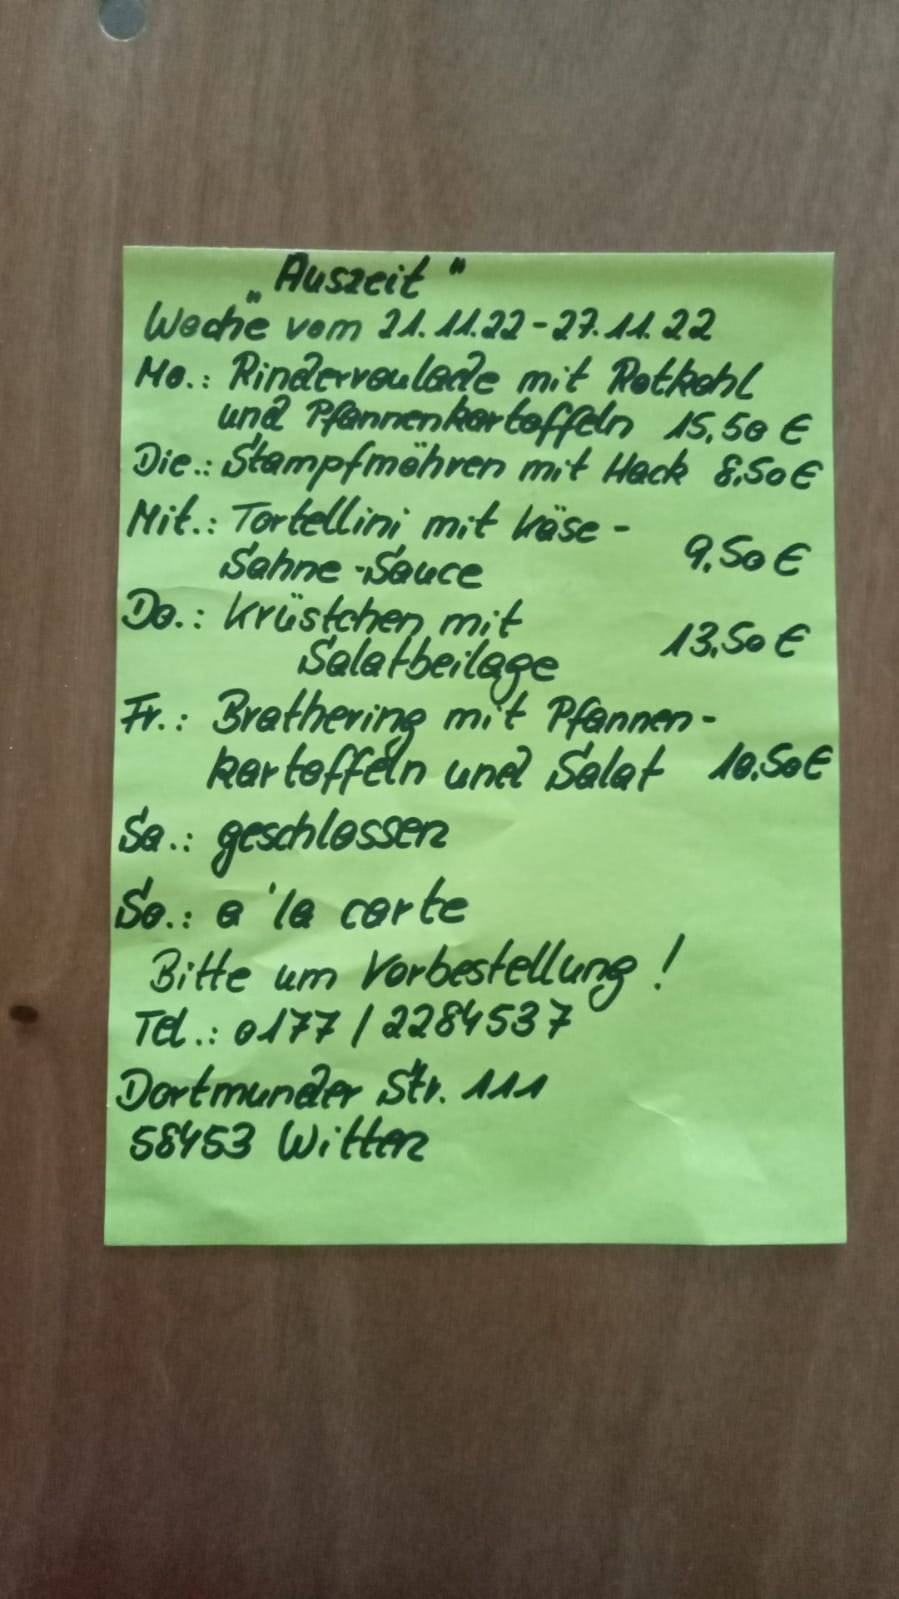 „Auszeit"
Woche vom 21.11.22-27.11.22
Mo.: Rinderroulade mit Rotkohl
und Pfannenkartoffeln 15,50 €
Die.: Stampfmöhren mit Hack 8,50 €
Mit.: Tortellini mit Käse-
Sahne-Sauce 9,50 €
Do.: Krüstchen mit
Salatbeilage 13,50 €
Fr.: Brathering mit Pfannen-
kartoffeln und Salat 10,50 €
Sa.: geschlossen
So.: a'la carte
Bitte um Vorbestellung!
Tel.: 0177 / 2284537
Dortmunder Str. 111
58453 Witten